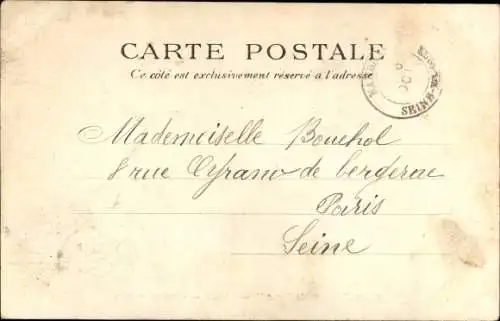 CARTE POSTALE
Ce côté est exclusivement réservé à l'adresse
SEINE
Mademoiselle Bouchol
8 rue Cyrano de bergerac
Paris
Seine